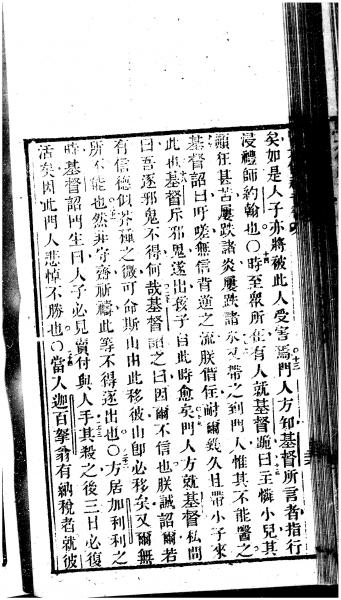 矣如是人子亦將被此人受害焉門人方知基督所言者指行
浸禮師約翰也○時至眾所在有人就基督跪曰主憐小兒其
癲狂甚苦屢跌諸炎屢跌諸水予帶之到門人惟其不能醫之
基督詔曰吁嗟無信背逆之流朕偕任耐爾幾久且帶小子來
此也基督斥邪鬼遂出孩子自此時愈矣門人方就基督私問
曰吾逐邪鬼不得何哉基督詔之曰因爾不信也朕誠詔爾若
有信德似芥種之微可命斯山由此移彼山即必移矣又爾無
所不能也然非守齋祈禱此等不得逐出也○方居加利利之
時基督詔門生曰人子必見賣付與人手其殺之後三日必復
活矣因此門人悲悼不勝也○當入迦百拏翁有納稅者就彼